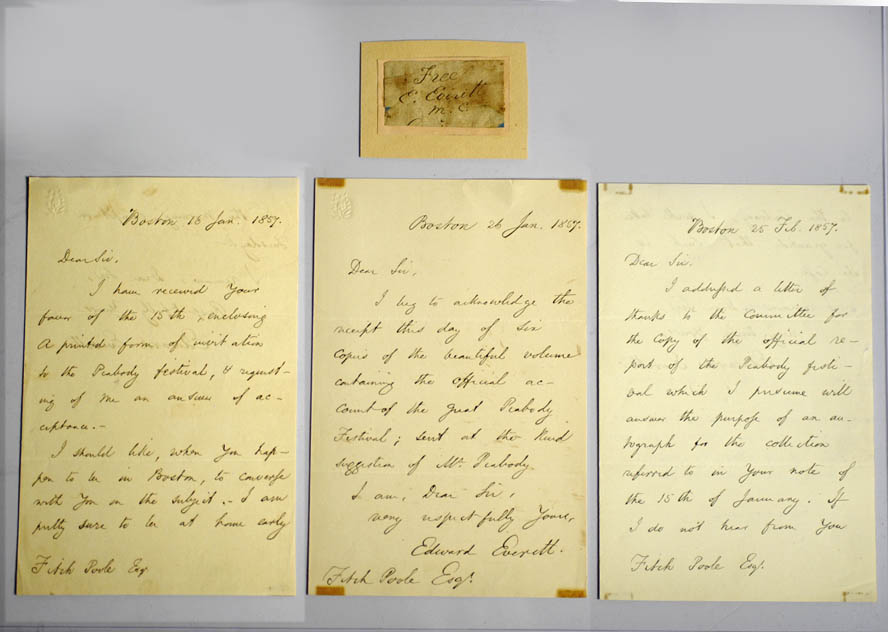 Free
E. Everett
M.C.
Boston 16 Jan. 1857.
Dear Sir,
I have received your
favor of the 15th, enclosing
a printed form of invitation
to the Peabody festival, & request-
ing of me an answer of ac-
ceptance.-
I should like, when you hap-
pen to be in Boston, to converse
with you on the subject. I am
pretty sure to be at home early
Fitch Poole Esq.
Boston 26 Jan. 1857.
Dear Sir,
I beg to acknowledge the
receipt this day of six
copies of the beautiful volume
containing the official ac-
count of the great Peabody
Festival; sent at the kind
suggestion of Mr. Peabody.
I am, Dear Sir,
very respectfully Yours,
Edward Everett.
Fitch Poole Esqr.
Boston 25 Feb. 1857.
Dear Sir.
I addressed a letter of
thanks to the Committee for
the copy of the official re-
port of the Peabody festi-
val which I presume will
answer the purpose of an au-
tograph for the collection
referred to in your note of
the 15th of January. If
I do not hear from you
Fitch Poole Esqr.